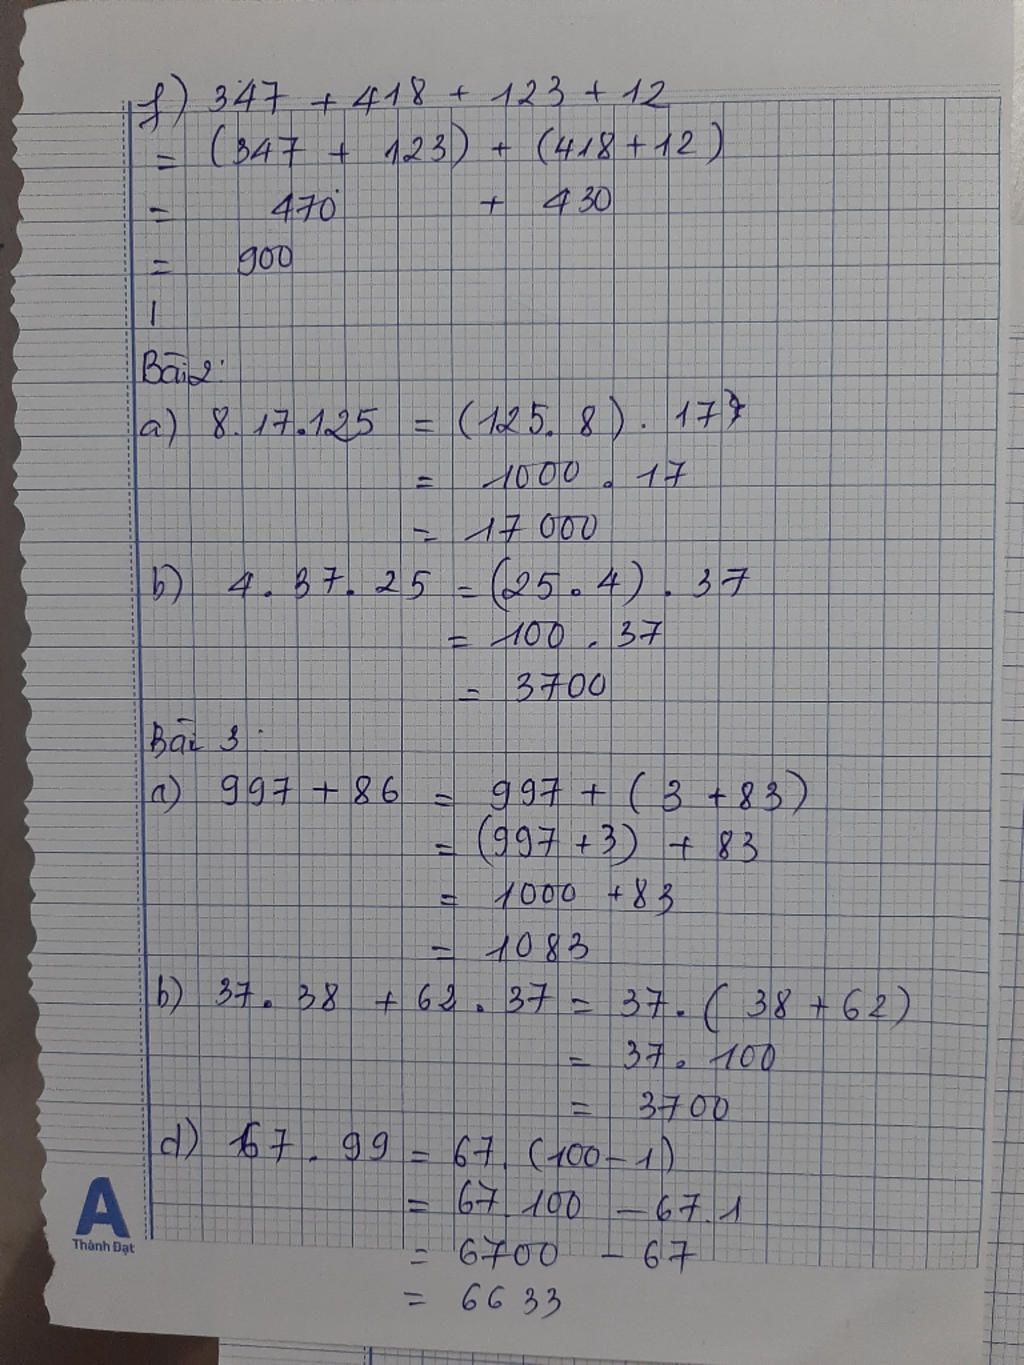 f) 347 + 418 + 123 + 12
= (347 + 123) + (418 + 12)
= 470 + 430
= 900
Bài 2:
a) 8.17.125 = (125.8). 177
= 1000 . 17
= 17 000
b) 4. 37. 25 = (25.4). 37
= 100 . 37
= 3700
Bài 3:
a) 997 + 86 = 997 + (3 + 83)
= (997 + 3) + 83
= 1000 + 83
= 1083
b) 37. 38 + 62 . 37 = 37. (38 + 62)
= 37. 100
= 3700
d) 67 . 99 = 67. (100 - 1)
= 67.100 - 67.1
= 6700 - 67
= 6633
A
Thành Đạt